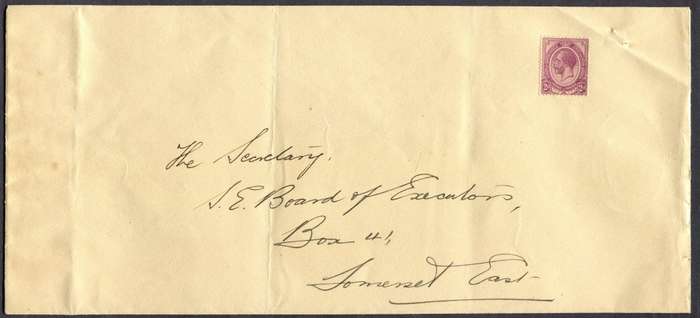 The Secretary.
S. E. Board of Executors,
Box 41,
Somerset East